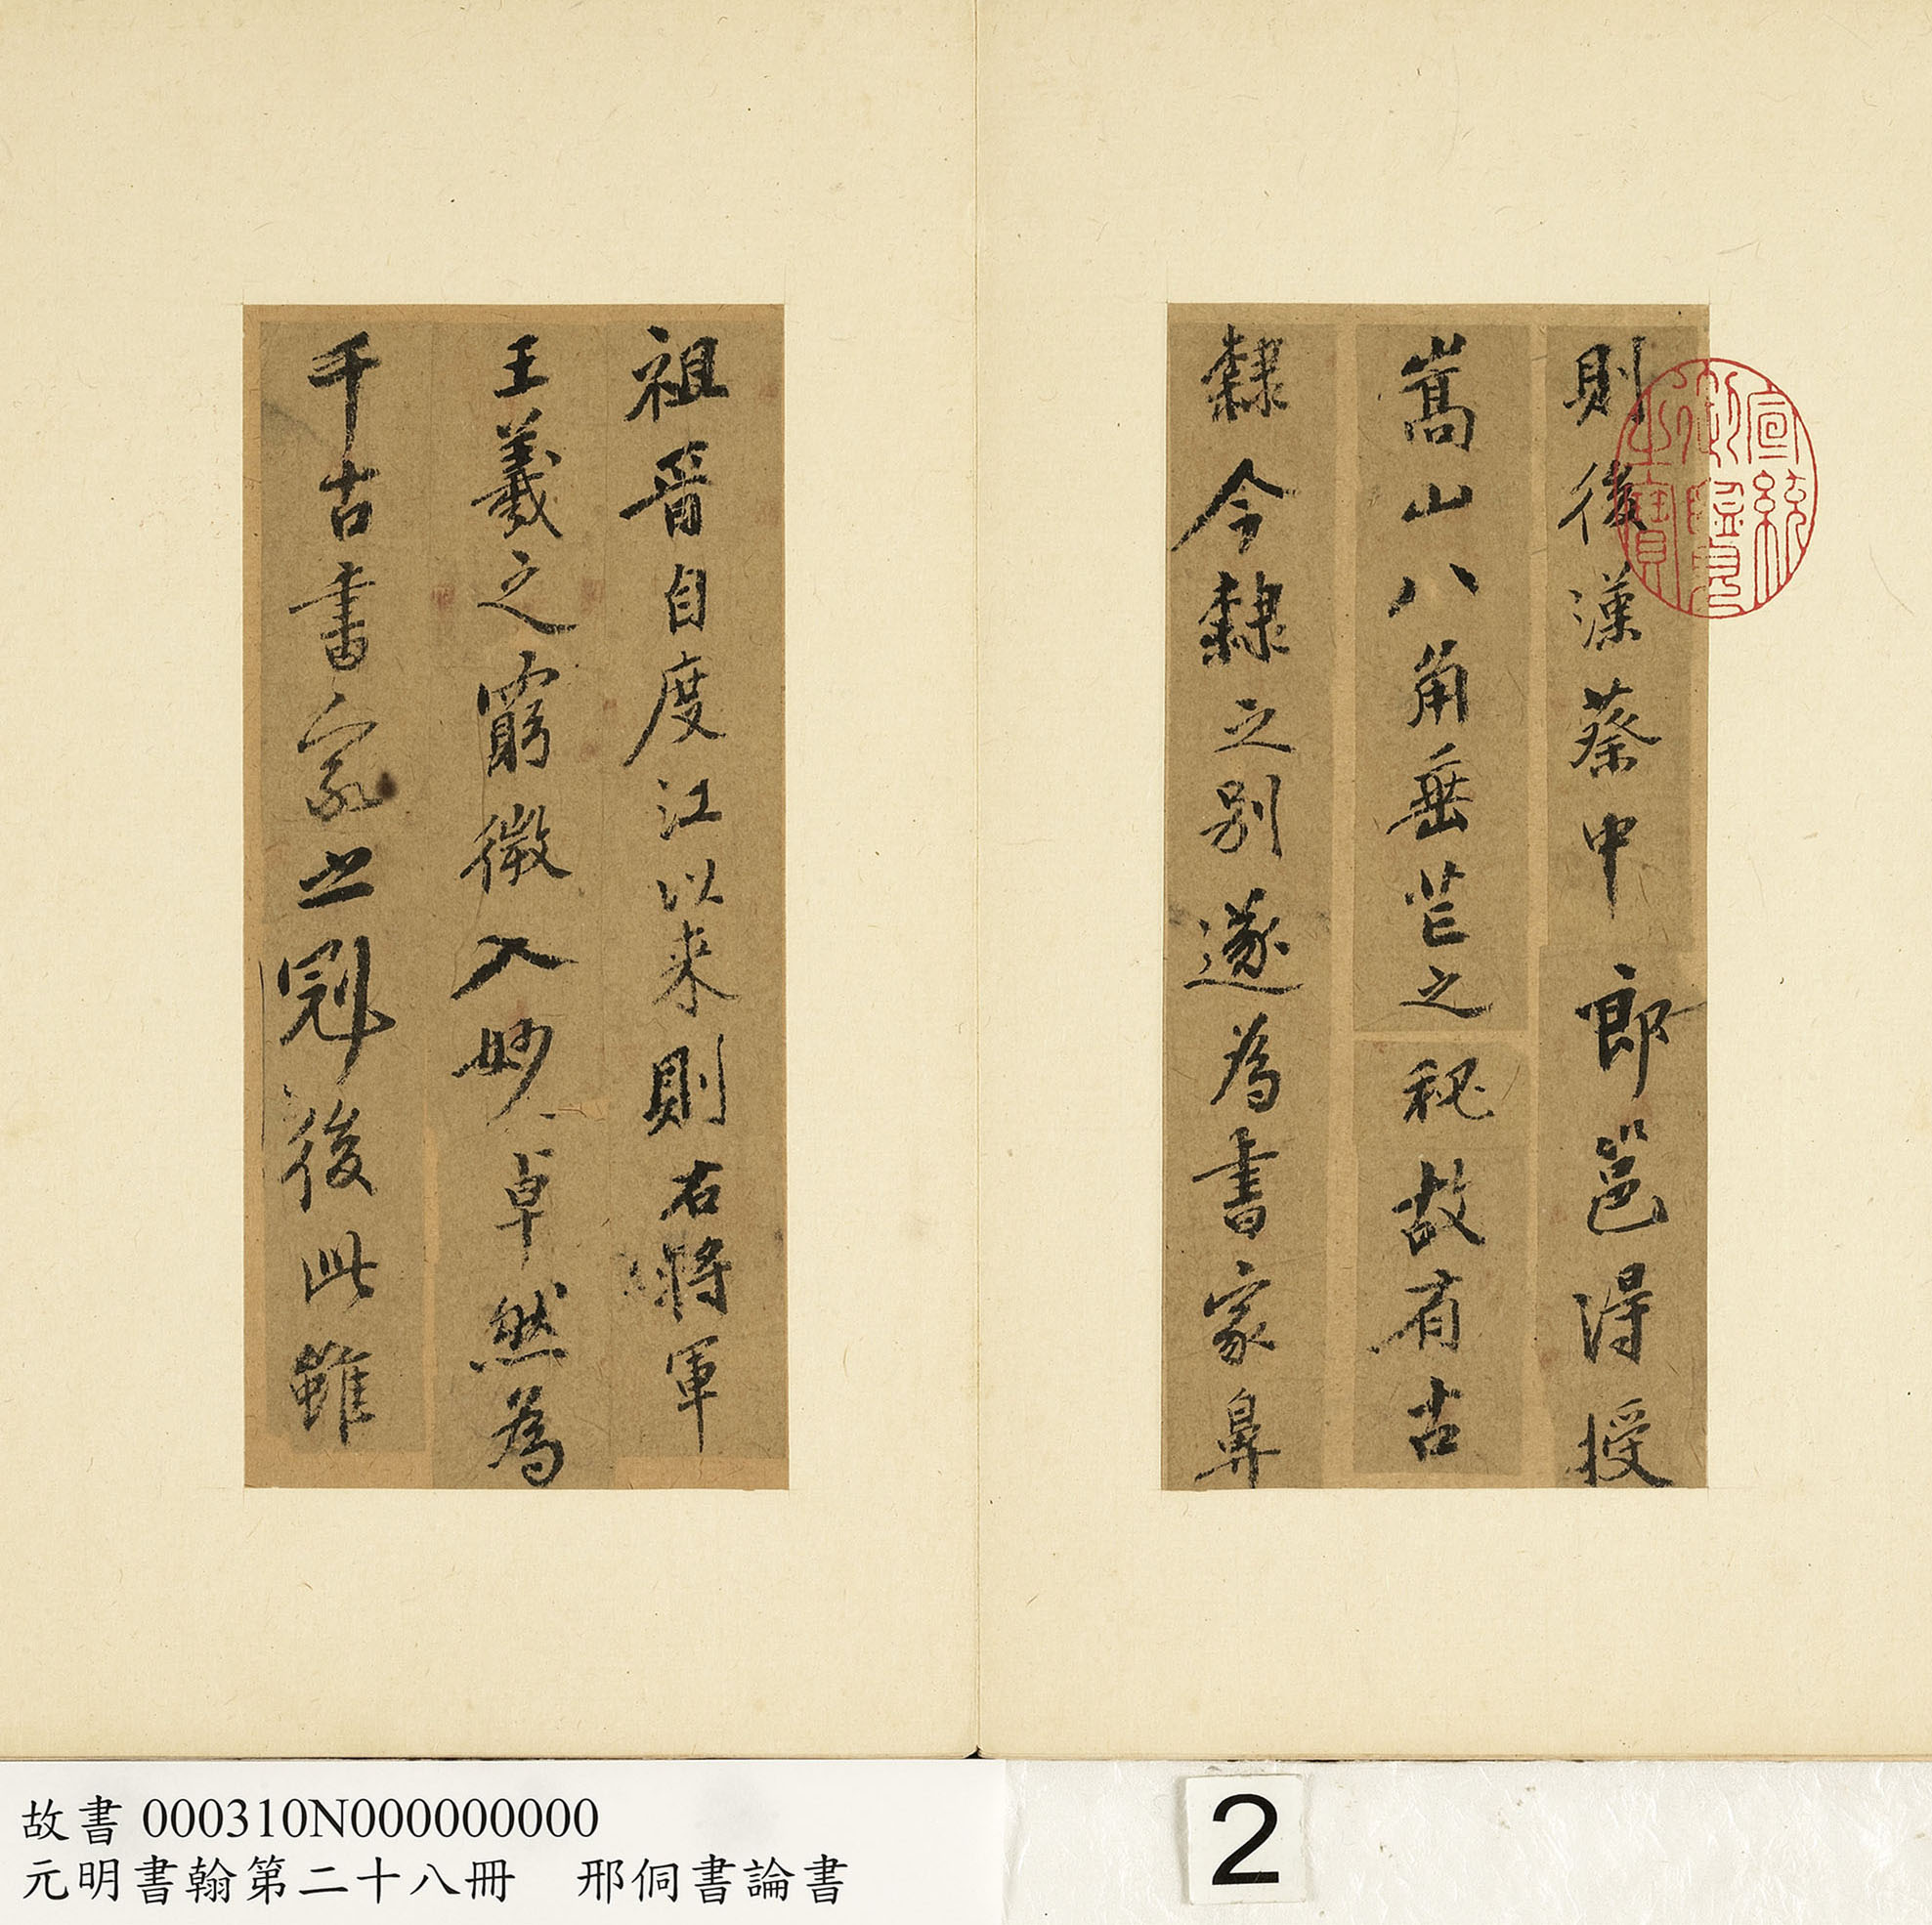 則後漢蔡中郎邕得授
嵩山八角垂芒之秘故有古
隸今隸之別遂為書家鼻
祖晉自度江以来則右將軍
王羲之窮微入妙卓然為
千古書家之冠後此雖
宣統御覽之寶
故書 000310N000000000
元明書翰第二十八冊 邢侗書論書
2